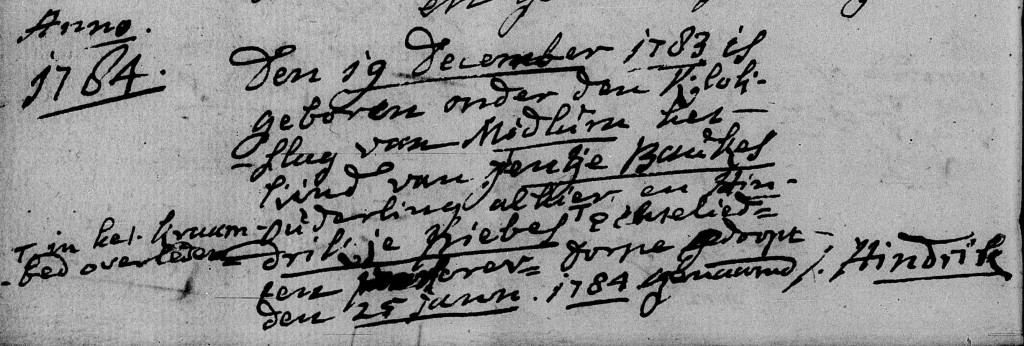 en
Anno.
1784.
Den 19 December 1783 is
geboren onder den Klok-
-slag van Midlum het-
kind van Jentje Baukes
ouderling alhier en Hin-
drikje Riebes Echtelied=
ten deser dorpe gedoopt-
den 25 jann. 1784 genaamd /. Hindrik
in het kraam-
bed overleden